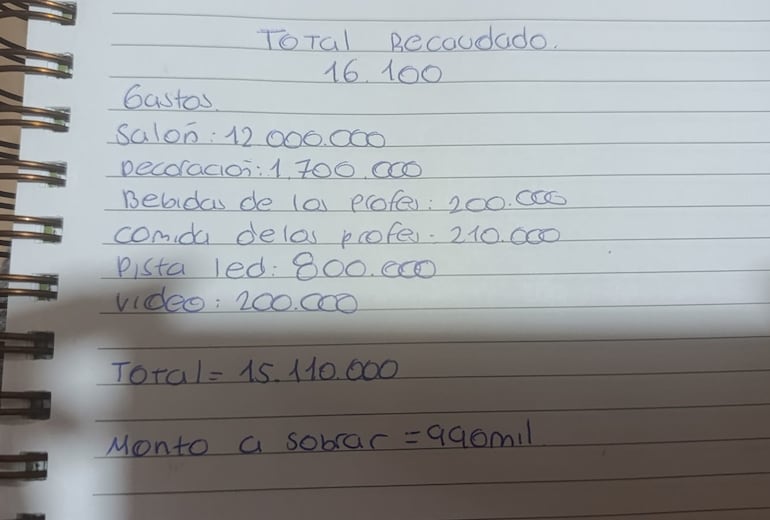 Total Recaudado.
16.100
Gastos.
Salón: 12 000.000
Decoración: 1.700.000
Bebidas de las profes: 200.000
comida de las profes: 210.000
Pista led: 800.000
video: 200.000
Total = 15.110.000
Monto a sobrar = 990mil